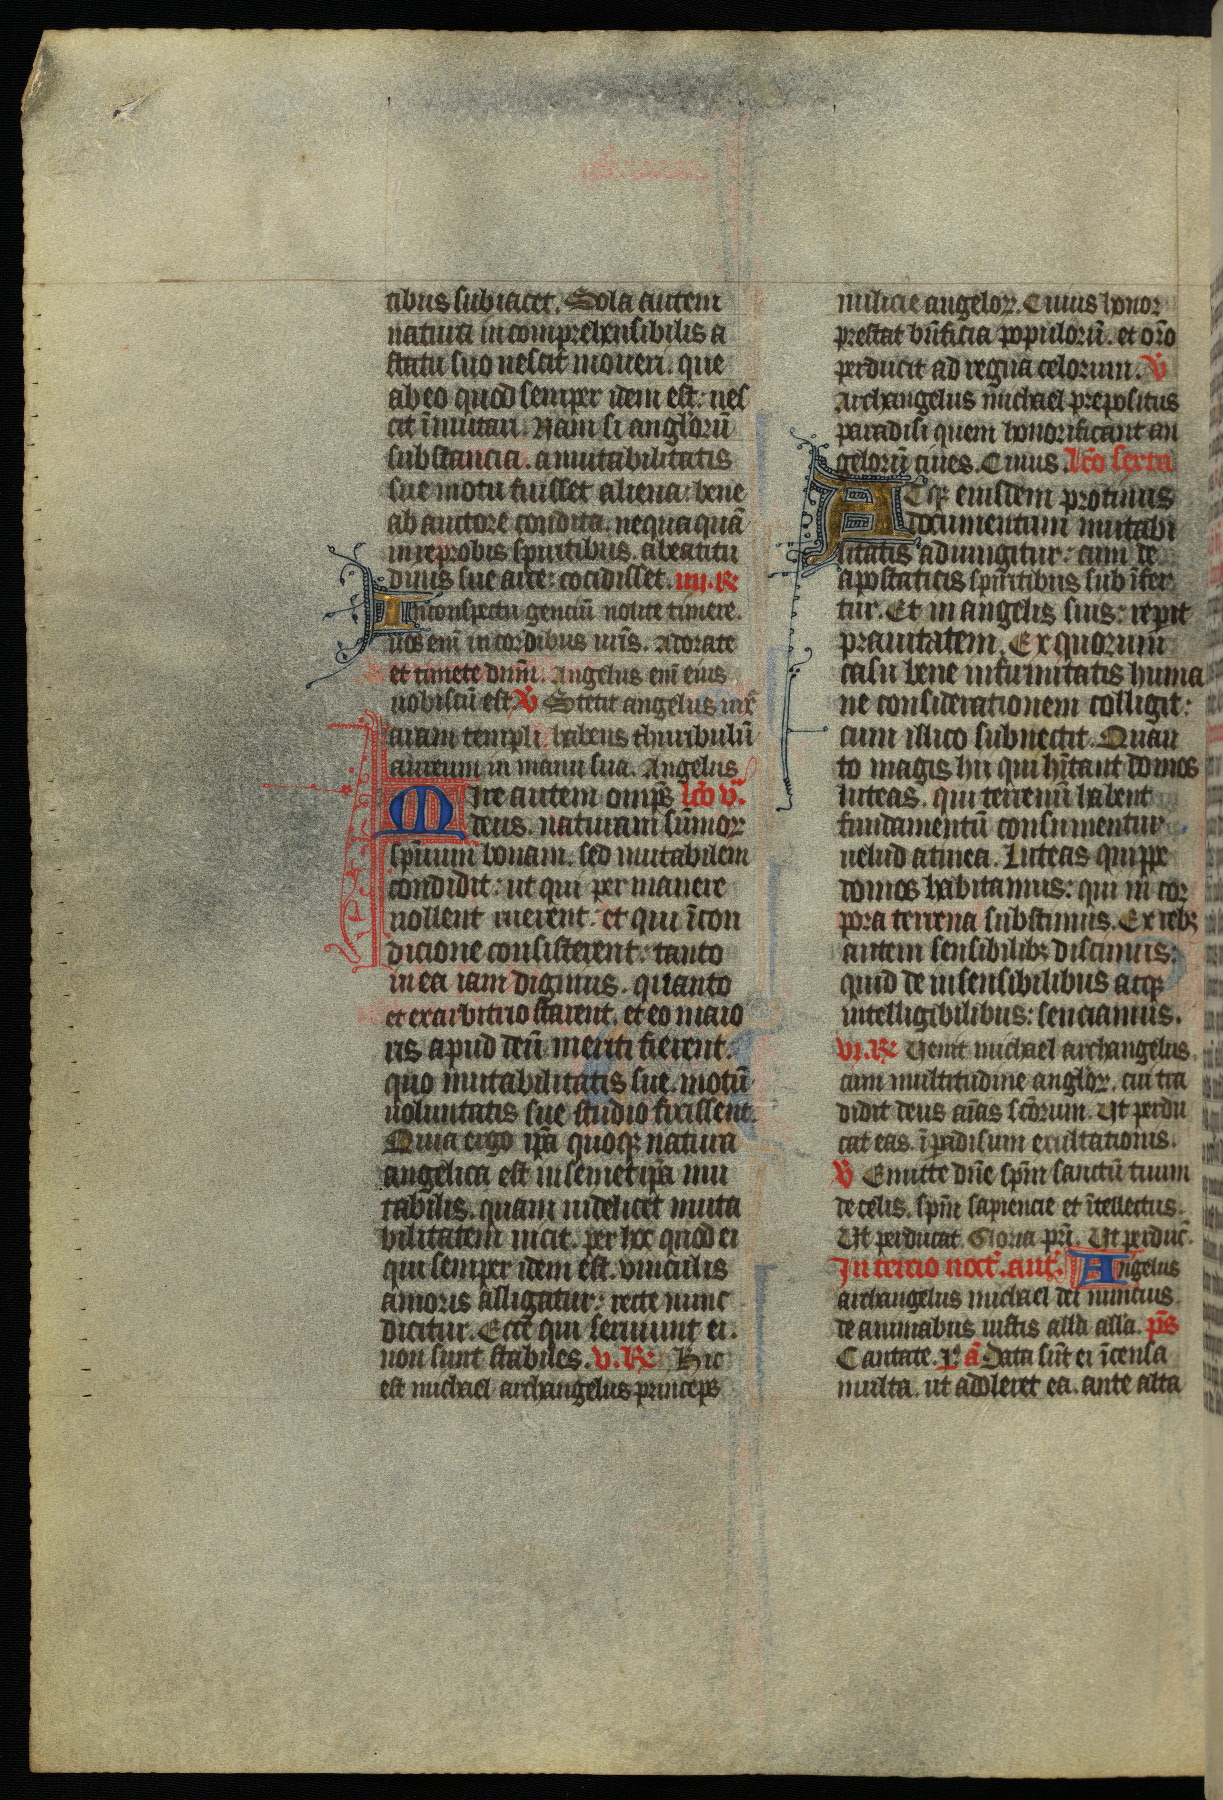 tibus subiacet. Sola autem
natura incomprehensibilis a
statu suo nescit moueri. que
ab eo quod semper idem est: nes
cit ĩmutari. Nam si anglorũ
substancia. a mutabilitatis
sue motu fuisset aliena: bene
ab auctore condita. nequaquã
in reprobis spiritibus. a beatitu
dinis sue arce: cecidisset. iiii. R
In conspectu genciũ nolite timere.
uos eni̅ in cordibus ur̃is. Adorate
et timete dñm. Angelus eni̅ eius
uobiscũ est. V Stetit angelus iux̃
aram templi. habens thuribulũ
aureum in manu sua. Angelus
Mire autem omp̃s lc̃o v.
deus. naturam sũmoꝝ
spirituum bonam. sed mutabilem
condidit: ut qui permanere
nollent ruerent. et qui ĩ con
dicione consisterent: tanto
in ea iam dignius. quanto
et ex arbitrio starent. et eo maio
ris apud deũ meriti fierent.
quo mutabilitatis sue motũ
uoluntatis sue studio fixissent.
Quia ergo ip̃a quoqꝫ natura
angelica est in semetip̃a mu
tabilis. quam uidelicet muta
bilitatem uicit. per hoc quod ei
qui semper idem est. uinculis
amoris alligatur: recte nunc
dicitur. Ecce qui seruiunt ei.
non sunt stabiles. v. R Hic
est michael archangelus princeps
milicie angeloꝝ. Cuius honor
prestat bñficia populorũ. et or̃o
perducit ad regna celorum. V
Archangelus michael prepositus
paradisi quem honorificant an
gelorũ ciues. Cuius. lc̃o sexta
Atqꝫ eiusdem protinus
documentum mutabi
litatis adiungitur: cum de
apostaticis spiritibus subĩfer
tur. Et in angelis suis: repit
prauitatem. Ex quorum
casu bene infirmitatis huma
ne considerationem colligit:
cum illico subnectit. Quan
to magis hii qui hĩtant domos
luteas. qui terrenũ habent
fundamentũ consumentur
uelud a tinea. Luteas quippe
domos habitamus: qui in cor
pora terrena subsistimus. Ex rebꝫ
autem sensibilibꝫ discimus:
quid de insensibilibus atqꝫ
intelligibilibus: senciamus.
vi. R Uenit michael archangelus
cum multitudine angloꝝ. cui tra
didit deus ãas sc̃orum. Ut perdu
cat eas. ĩ padisum exultationis.
V Emitte dñe spm̃ sanctũ tuum
de celis. spm̃ sapiencie et ĩtellectus.
Ut perducat. Gloria pr̃i. Ut perduc̃.
In tercio noct̃. ant̃. Angelus
archangelus michael dei nuncius
de animabus iustis alla alla. p̃s
Cantate. p̃ ã Data sũt ei ĩcensa
multa. ut adoleret ea. ante alta